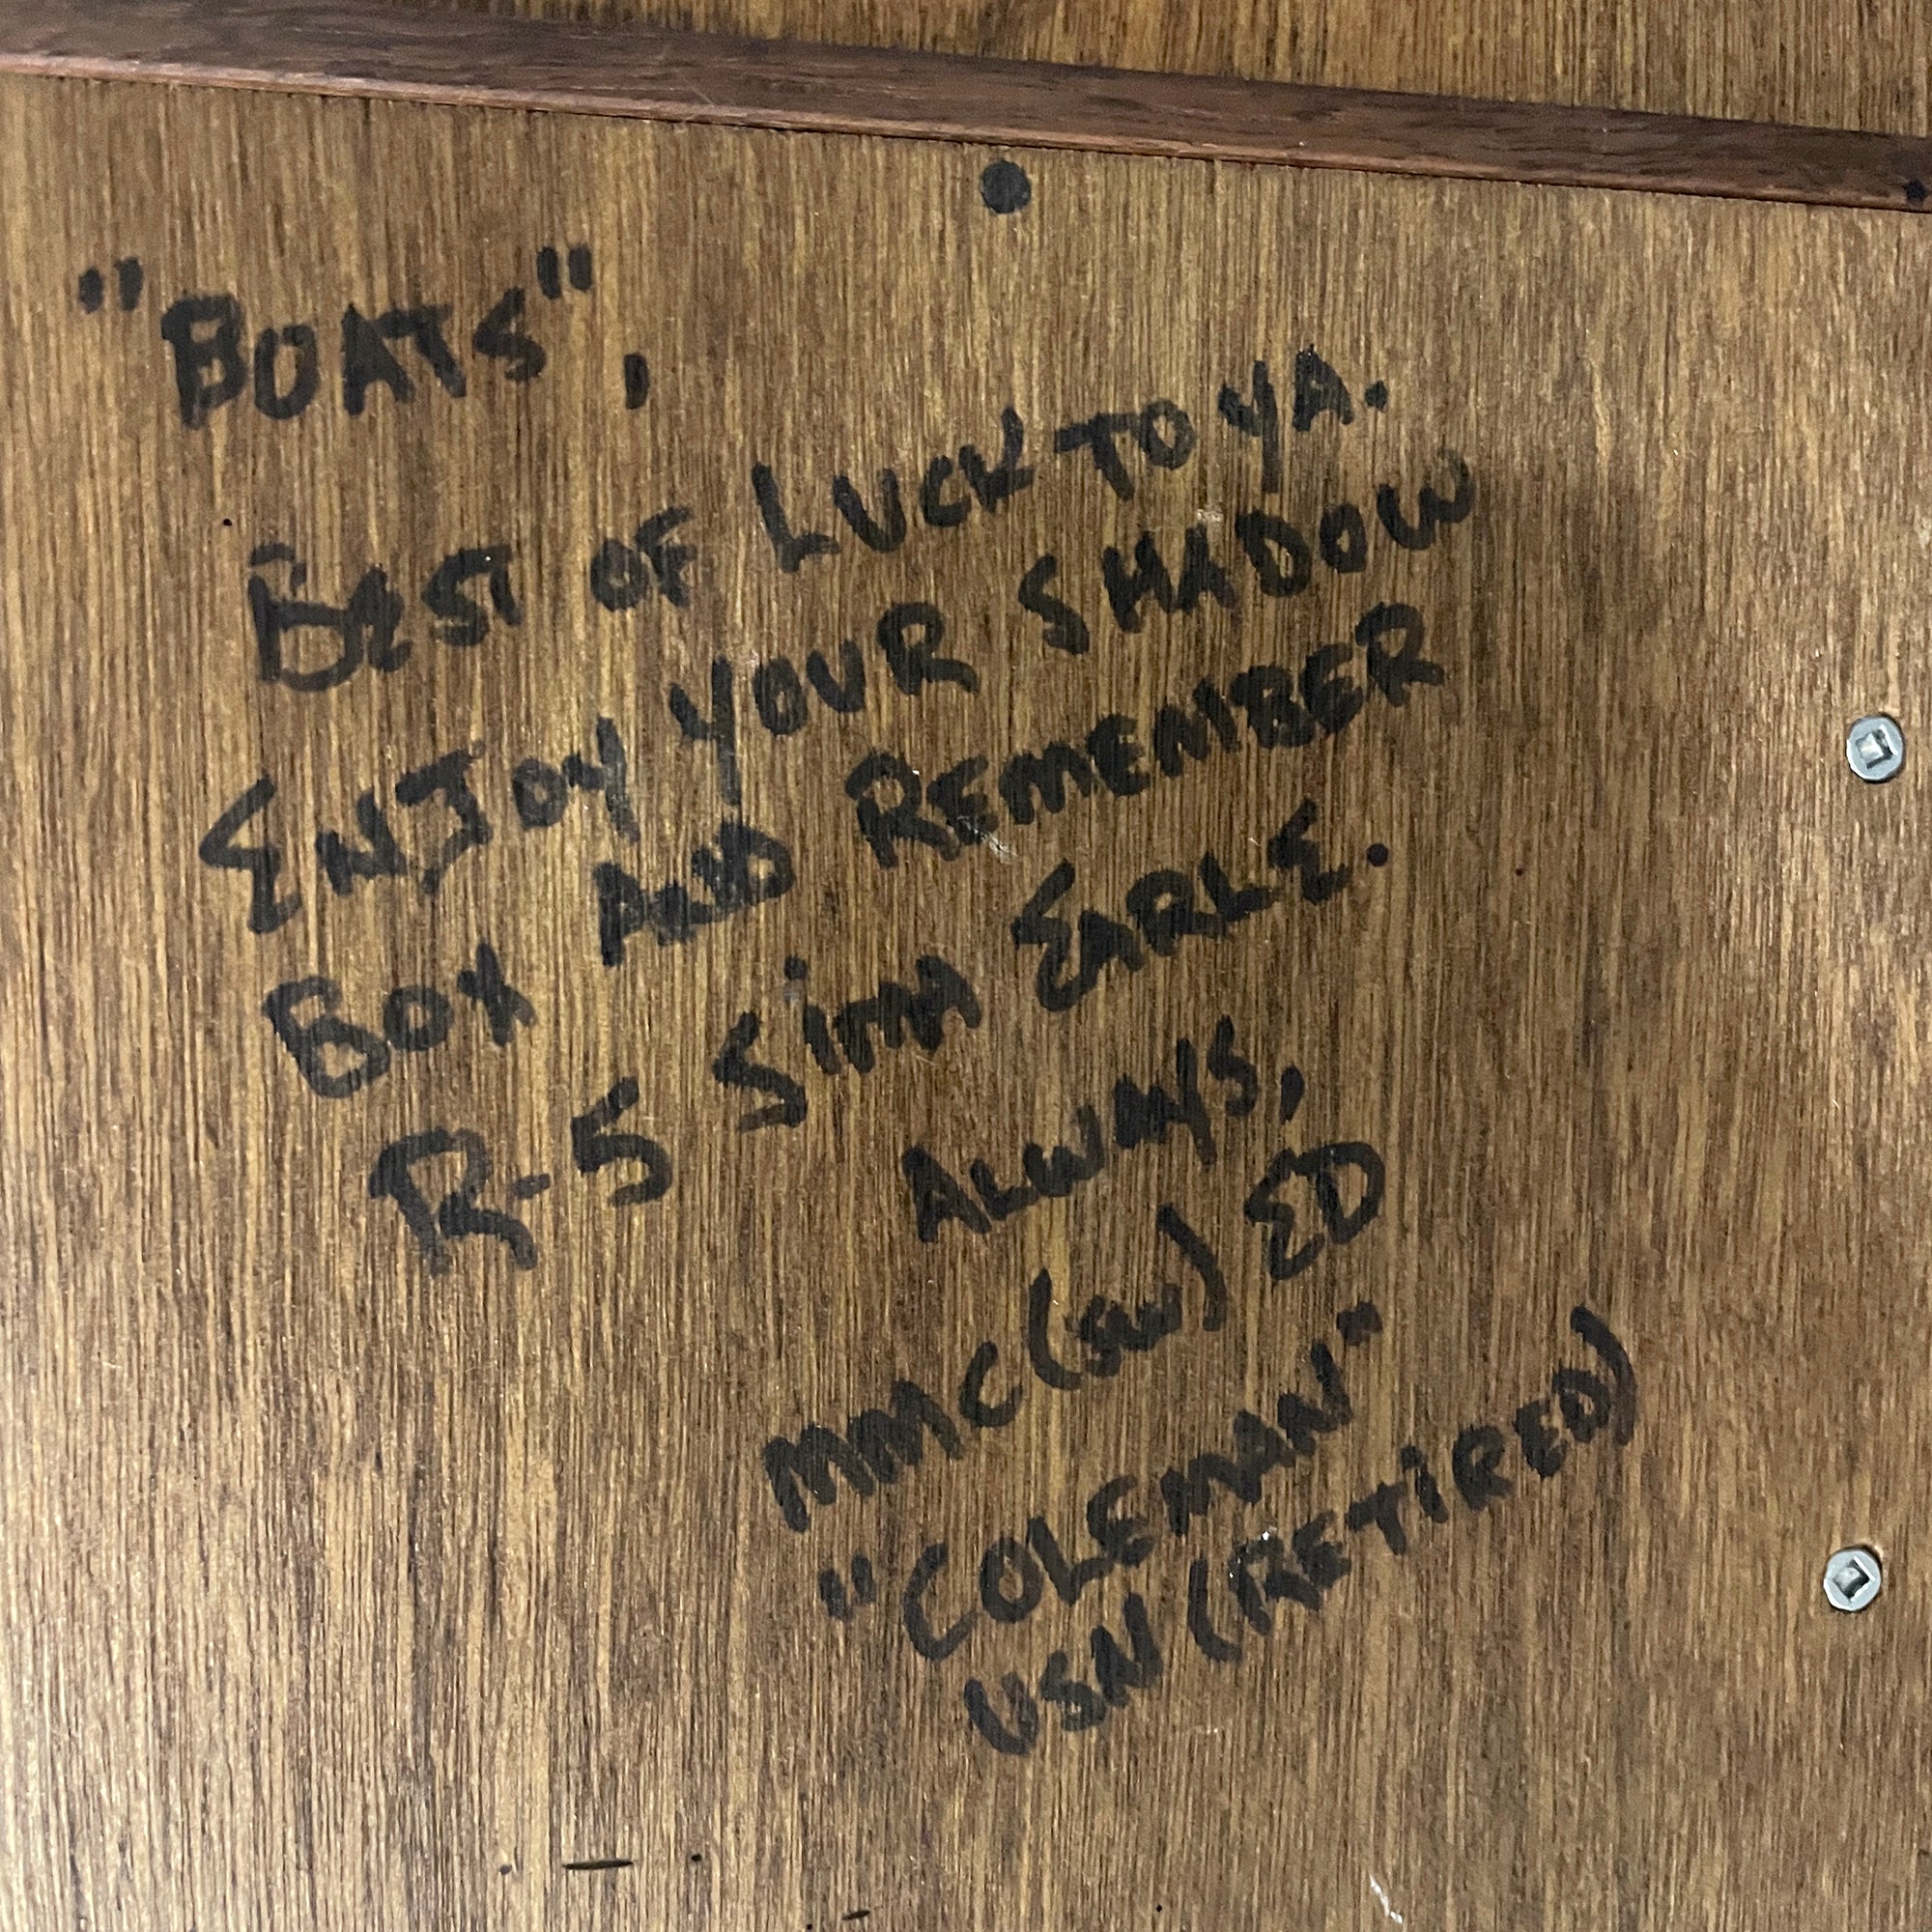 "BOATS",
BEST OF LUCK TO YA.
ENJOY YOUR SHADOW
BOX AND REMEMBER
R-5 SIMA EARLE.
ALWAYS,
MMC (SW) ED
"COLEMAN"
USN (RETIRED)